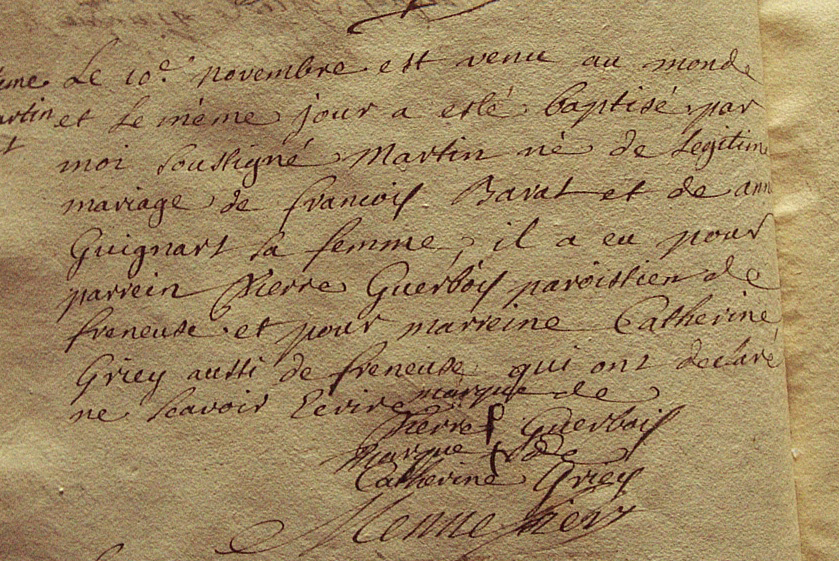 Le 10e. novembre est venu au monde
et le même jour a esté baptisé par
moi soussigné Martin né de legitime
mariage de francois Barat et de ann
Guignart sa femme, il a eu pour
parrein Pierre Guerbois paroissien de
freneuse et pour marreine Catherine
Griey aussi de freneuse qui ont declaré
ne scavoir Ecrire marque de
Pierre Guerbois
Marque de
Catherine Griey